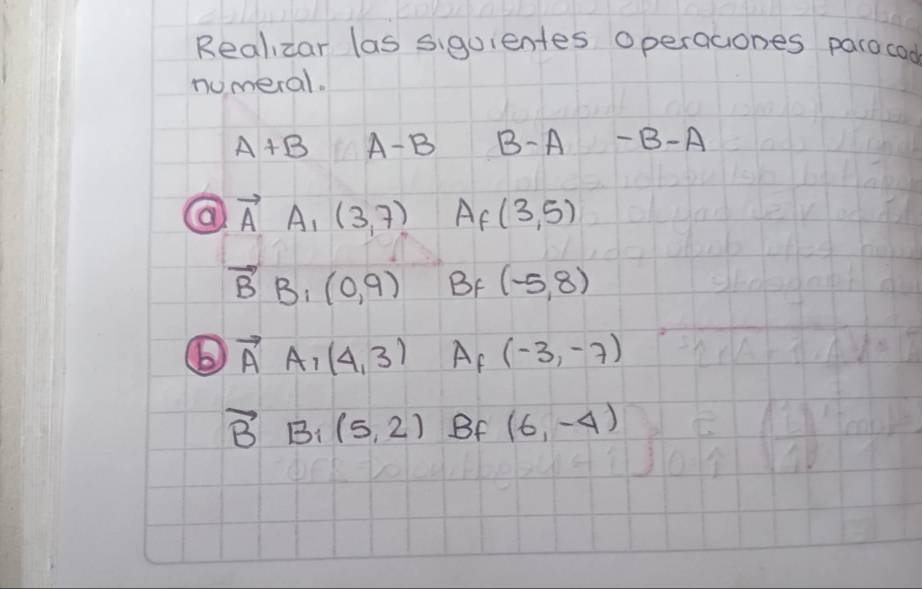 Realizar las siguientes operaciones para cad
numeral.
A+B A-B B-A -B-A
a A⃗ A₁ (3,7) Af (3,5)
B⃗ B₁ (0,9) Bf (-5,8)
b A⃗ A₁ (4,3) Af (-3,-7)
B⃗ B₁ (5,2) Bf (6,-4)